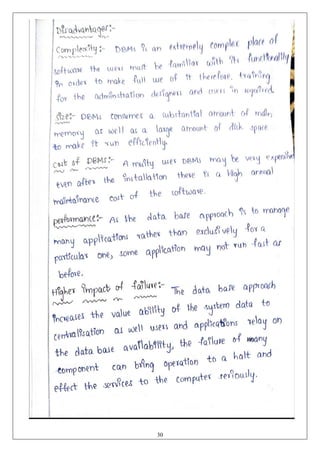 Disadvantages:-
Complexity:- DBMS is an extremely complex place of
software the users must be familiar with its functionality
in order to make full use of it therefore, training
for the adminstration designers and users in required.
Size:- DBMS consumes a substantial amount of main,
memory as well as a large amount of disk space.
to make it run efficiently.
Cost of DBMS:- A multy user DBMS may be very expensive
even after the installation there is a high annual
maintainance cost of the software.
performance:- As the data base approach is to manage
many applications rather than exclusively for a
particular one, some application may not run fast as
before.
Higher impact of failure:- The data base approach
increases the value ability of the system data to
centralisation as well users and applications relay on
the data base availability, the failure of many
component can bring operation to a halt and
effect the services to the computer seriously.
30